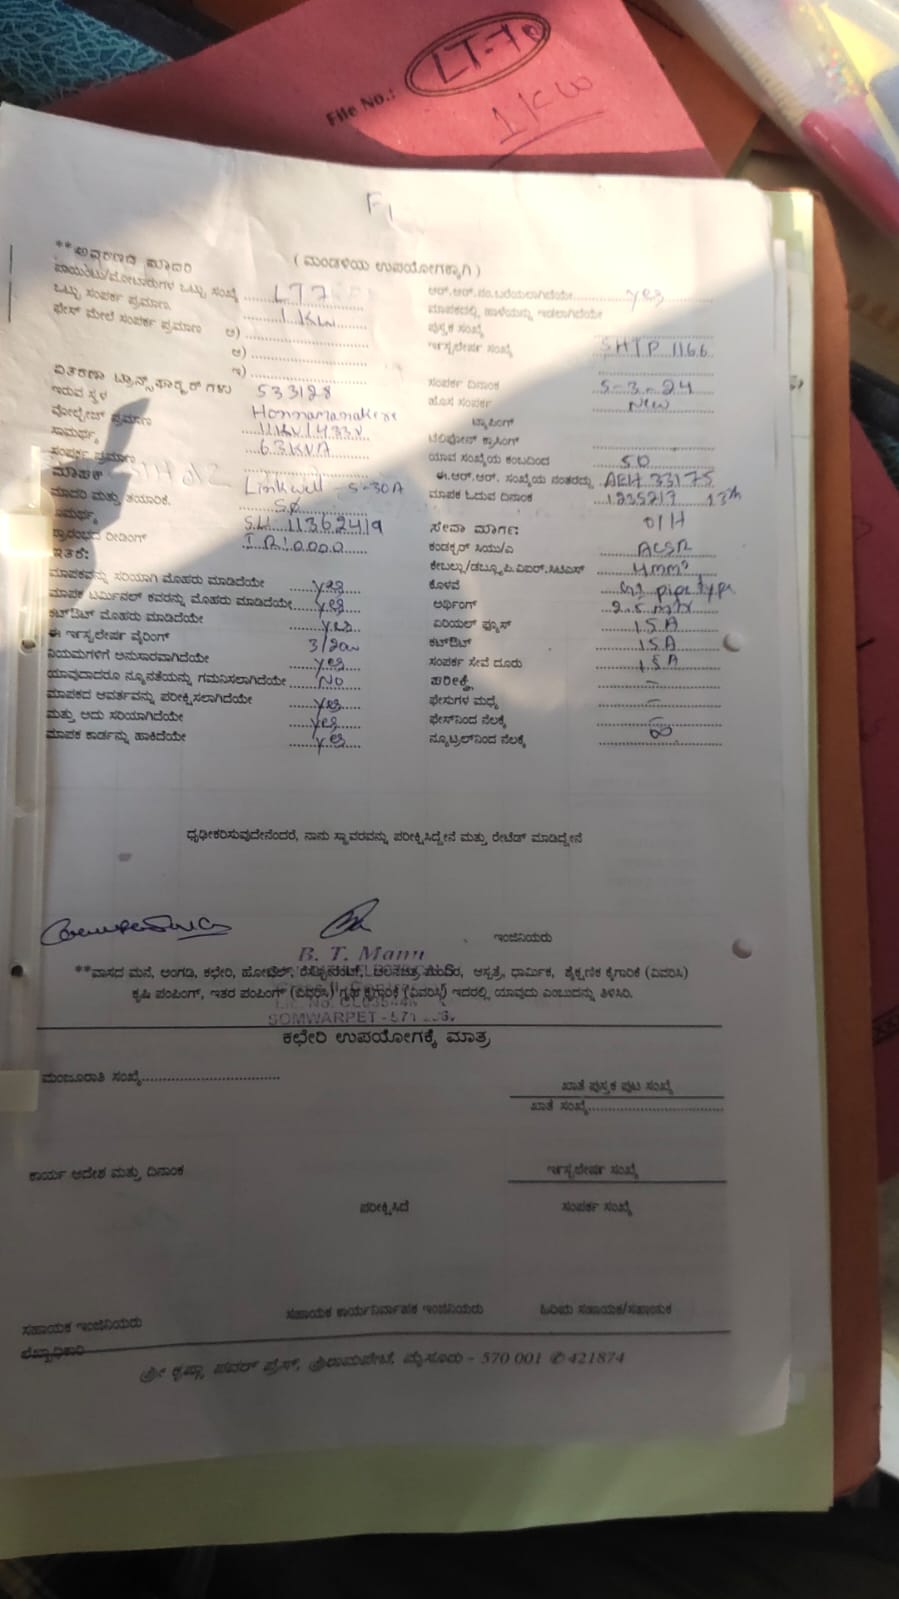 File No.: LT-7
1 KW
F1
( ಮಂಡಳಿಯ ಉಪಯೋಗಕ್ಕಾಗಿ )
ಪಾಯಿಂಟು/ಮೋಟಾರುಗಳ ಒಟ್ಟು ಸಂಖ್ಯೆ LT7
ಒಟ್ಟು ಸಂಪರ್ಕ ಪ್ರಮಾಣ. 1 KW
ಫೇಸ್ ಮೇಲೆ ಸಂಪರ್ಕ ಪ್ರಮಾಣ ಅ)
ಆ)
ಇ)
ವಿತರಣಾ ಟ್ರಾನ್ಸ್‌ಫಾರ್ಮರ್ ಗಳು 533128
ಇರುವ ಸ್ಥಳ
ವೋಲ್ಟೇಜ್ ಪ್ರಮಾಣ 11KV/433V
ಸಾಮರ್ಥ್ಯ 63KVA
ಸಂಪರ್ಕ ಪ್ರಮಾಣ
ಮಾಪಕ
ಮಾದರಿ ಮತ್ತು ತಯಾರಿಕೆ. Linkwell 5-30A
ಸಾಮರ್ಥ್ಯ
ಪ್ರಾರಂಭದ ರೀಡಿಂಗ್
ಇತರೆ:
ಮಾಪಕವನ್ನು ಸರಿಯಾಗಿ ಮೊಹರು ಮಾಡಿದೆಯೇ yes
ಮಾಪಕ ಟರ್ಮಿನಲ್ ಕವರನ್ನು ಮೊಹರು ಮಾಡಿದೆಯೇ yes
ಕಟ್‌ಔಟ್ ಮೊಹರು ಮಾಡಿದೆಯೇ yes
ಈ ಇನ್ಸ್ಟಲೇಷನ್ ವೈರಿಂಗ್
ನಿಯಮಗಳಿಗೆ ಅನುಸಾರವಾಗಿದೆಯೇ yes
ಯಾವುದಾದರೂ ನ್ಯೂನತೆಯನ್ನು ಗಮನಿಸಲಾಗಿದೆಯೇ No
ಮಾಪಕದ ಆವರ್ತವನ್ನು ಪರೀಕ್ಷಿಸಲಾಗಿದೆಯೇ yes
ಮತ್ತು ಅದು ಸರಿಯಾಗಿದೆಯೇ yes
ಮಾಪಕ ಕಾರ್ಡನ್ನು ಹಾಕಿದೆಯೇ yes
ಆರ್.ಆರ್.ನಂ.ಬರೆಯಲಾಗಿದೆಯೇ yes
ಮಾಪಕದಲ್ಲಿ ಹಾಳೆಯನ್ನು ಇಡಲಾಗಿದೆಯೇ
ಪುಸ್ತಕ ಸಂಖ್ಯೆ
ಇನ್ಸ್ಟಲೇಷನ್ ಸಂಖ್ಯೆ SHTP 1166
ಸಂಪರ್ಕ ದಿನಾಂಕ 5-3-24
ಹೊಸ ಸಂಪರ್ಕ New
ಟ್ಯಾಪಿಂಗ್
ಟೆಲಿಫೋನ್ ಕ್ರಾಸಿಂಗ್
ಯಾವ ಸಂಖ್ಯೆಯ ಕಂಬದಿಂದ 50
ಈ.ಆರ್.ಆರ್. ಸಂಖ್ಯೆಯ ನಂತರದ್ದು AEH 33175
ಮಾಪಕ ಓದುವ ದಿನಾಂಕ 13th
ಸೇವಾ ಮಾರ್ಗ: O/H
ಕಂಡಕ್ಟರ್ ಸಿಯು/ಎ ACSR
ಕೇಬಲ್ಲು/ಡಬ್ಲ್ಯೂ.ಪಿ.ಐಆರ್.ಸಿಟಿಎಸ್ 4mm²
ಕೊಳವೆ GI pipe type
ಅರ್ಥಿಂಗ್ 2.5 mtr
ಏರಿಯಲ್ ಫ್ಯೂಸ್ 15A
ಕಟ್‌ಔಟ್ 15A
ಸಂಪರ್ಕ ಸೇವೆ ದೂರು 15A
ಪರೀಕ್ಷೆ -
ಫೇಸುಗಳ ಮಧ್ಯೆ -
ಫೇಸ್‌ನಿಂದ ನೆಲಕ್ಕೆ
ನ್ಯೂಟ್ರಲ್‌ನಿಂದ ನೆಲಕ್ಕೆ
ಧೃಢೀಕರಿಸುವುದೇನೆಂದರೆ, ನಾನು ಸ್ಥಾವರವನ್ನು ಪರೀಕ್ಷಿಸಿದ್ದೇನೆ ಮತ್ತು ರೇಟೆಡ್ ಮಾಡಿದ್ದೇನೆ
ಇಂಜಿನಿಯರು
B. T. Manu
**ವಾಸದ ಮನೆ, ಅಂಗಡಿ, ಕಛೇರಿ, ಹೋಟೆಲ್, ಆಸ್ಪತ್ರೆ, ಧಾರ್ಮಿಕ, ಶೈಕ್ಷಣಿಕ ಕೈಗಾರಿಕೆ (ವಿವರಿಸಿ)
ಕೃಷಿ ಪಂಪಿಂಗ್, ಇತರ ಪಂಪಿಂಗ್ (ವಿವರಿಸಿ) ಗೃಹ ಕೈಗಾರಿಕೆ (ವಿವರಿಸಿ) ಇದರಲ್ಲಿ ಯಾವುದು ಎಂಬುದನ್ನು ತಿಳಿಸಿರಿ.
SOMWARPET
ಕಛೇರಿ ಉಪಯೋಗಕ್ಕೆ ಮಾತ್ರ
ಮಂಜೂರಾತಿ ಸಂಖ್ಯೆ
ಖಾತೆ ಪುಸ್ತಕ ಪುಟ ಸಂಖ್ಯೆ
ಖಾತೆ ಸಂಖ್ಯೆ
ಕಾರ್ಯ ಆದೇಶ ಮತ್ತು ದಿನಾಂಕ
ಇನ್ಸ್ಟಲೇಷನ್ ಸಂಖ್ಯೆ
ಪರೀಕ್ಷಿಸಿದೆ
ಸಂಪರ್ಕ ಸಂಖ್ಯೆ
ಸಹಾಯಕ ಇಂಜಿನಿಯರು
ಸಹಾಯಕ ಕಾರ್ಯನಿರ್ವಾಹಕ ಇಂಜಿನಿಯರು
ಹಿರಿಯ ಸಹಾಯಕ/ಸಹಾಯಕ
ಲೆಖ್ಖಾಧಿಕಾರಿ
ಶ್ರೀ ಕೃಷ್ಣಾ ಪವರ್ ಪ್ರೆಸ್, ಶ್ರೀರಾಮಪೇಟೆ, ಮೈಸೂರು - 570 001 ✆ 421874